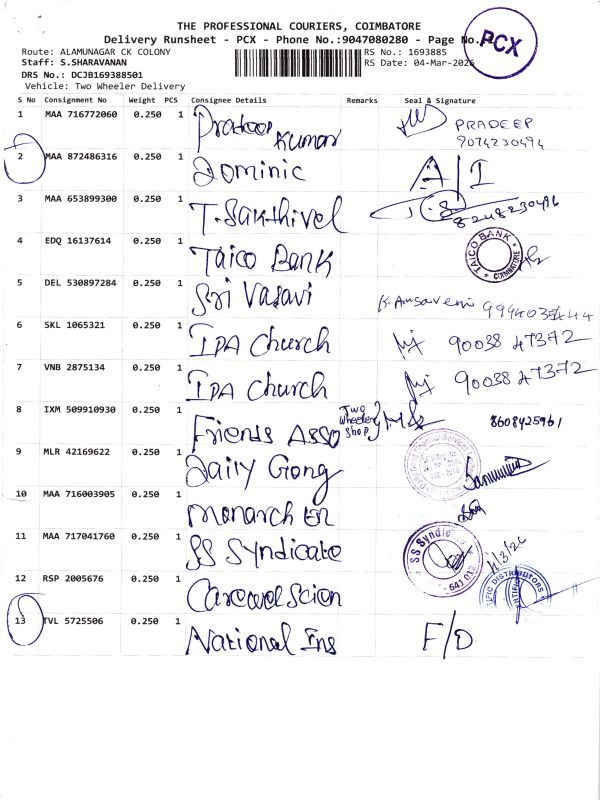 THE PROFESSIONAL COURIERS, COIMBATORE
Delivery Runsheet - PCX - Phone No.:9047080280 - Page No.
PCX
Route: ALAMUNAGAR CK COLONY
RS No.: 1693885
Staff: S.SHARAVANAN
RS Date: 04-Mar-2026
DRS No.: DCJB169388501
Vehicle: Two Wheeler Delivery
S No Consignment No Weight PCS Consignee Details Remarks Seal & Signature
1 MAA 716772060 0.250 1 Pradeep Kumar PRADEEP
9074230494
2 MAA 872486316 0.250 1 Dominic A/I
3 MAA 653899300 0.250 1 T. Sakthivel 8248230496
4 EDQ 16137614 0.250 1 Taico Bank TAICO BANK COIMBATORE
5 DEL 530897284 0.250 1 Sri Vasavi
6 SKL 1065321 0.250 1 IPA Church 90038 47372
7 VNB 2875134 0.250 1 IPA Church 90038 47372
8 IXM 509910930 0.250 1 Friends Asso Two Wheeler Shop 8608425961
9 MLR 42169622 0.250 1 Daily Gong
10 MAA 716003905 0.250 1 Monarch
11 MAA 717041760 0.250 1 SS Syndicate SS Syndic 641 012
12 RSP 2005676 0.250 1 DISTRIBUTORS
13 TVL 5725506 0.250 1 National Ins F/D